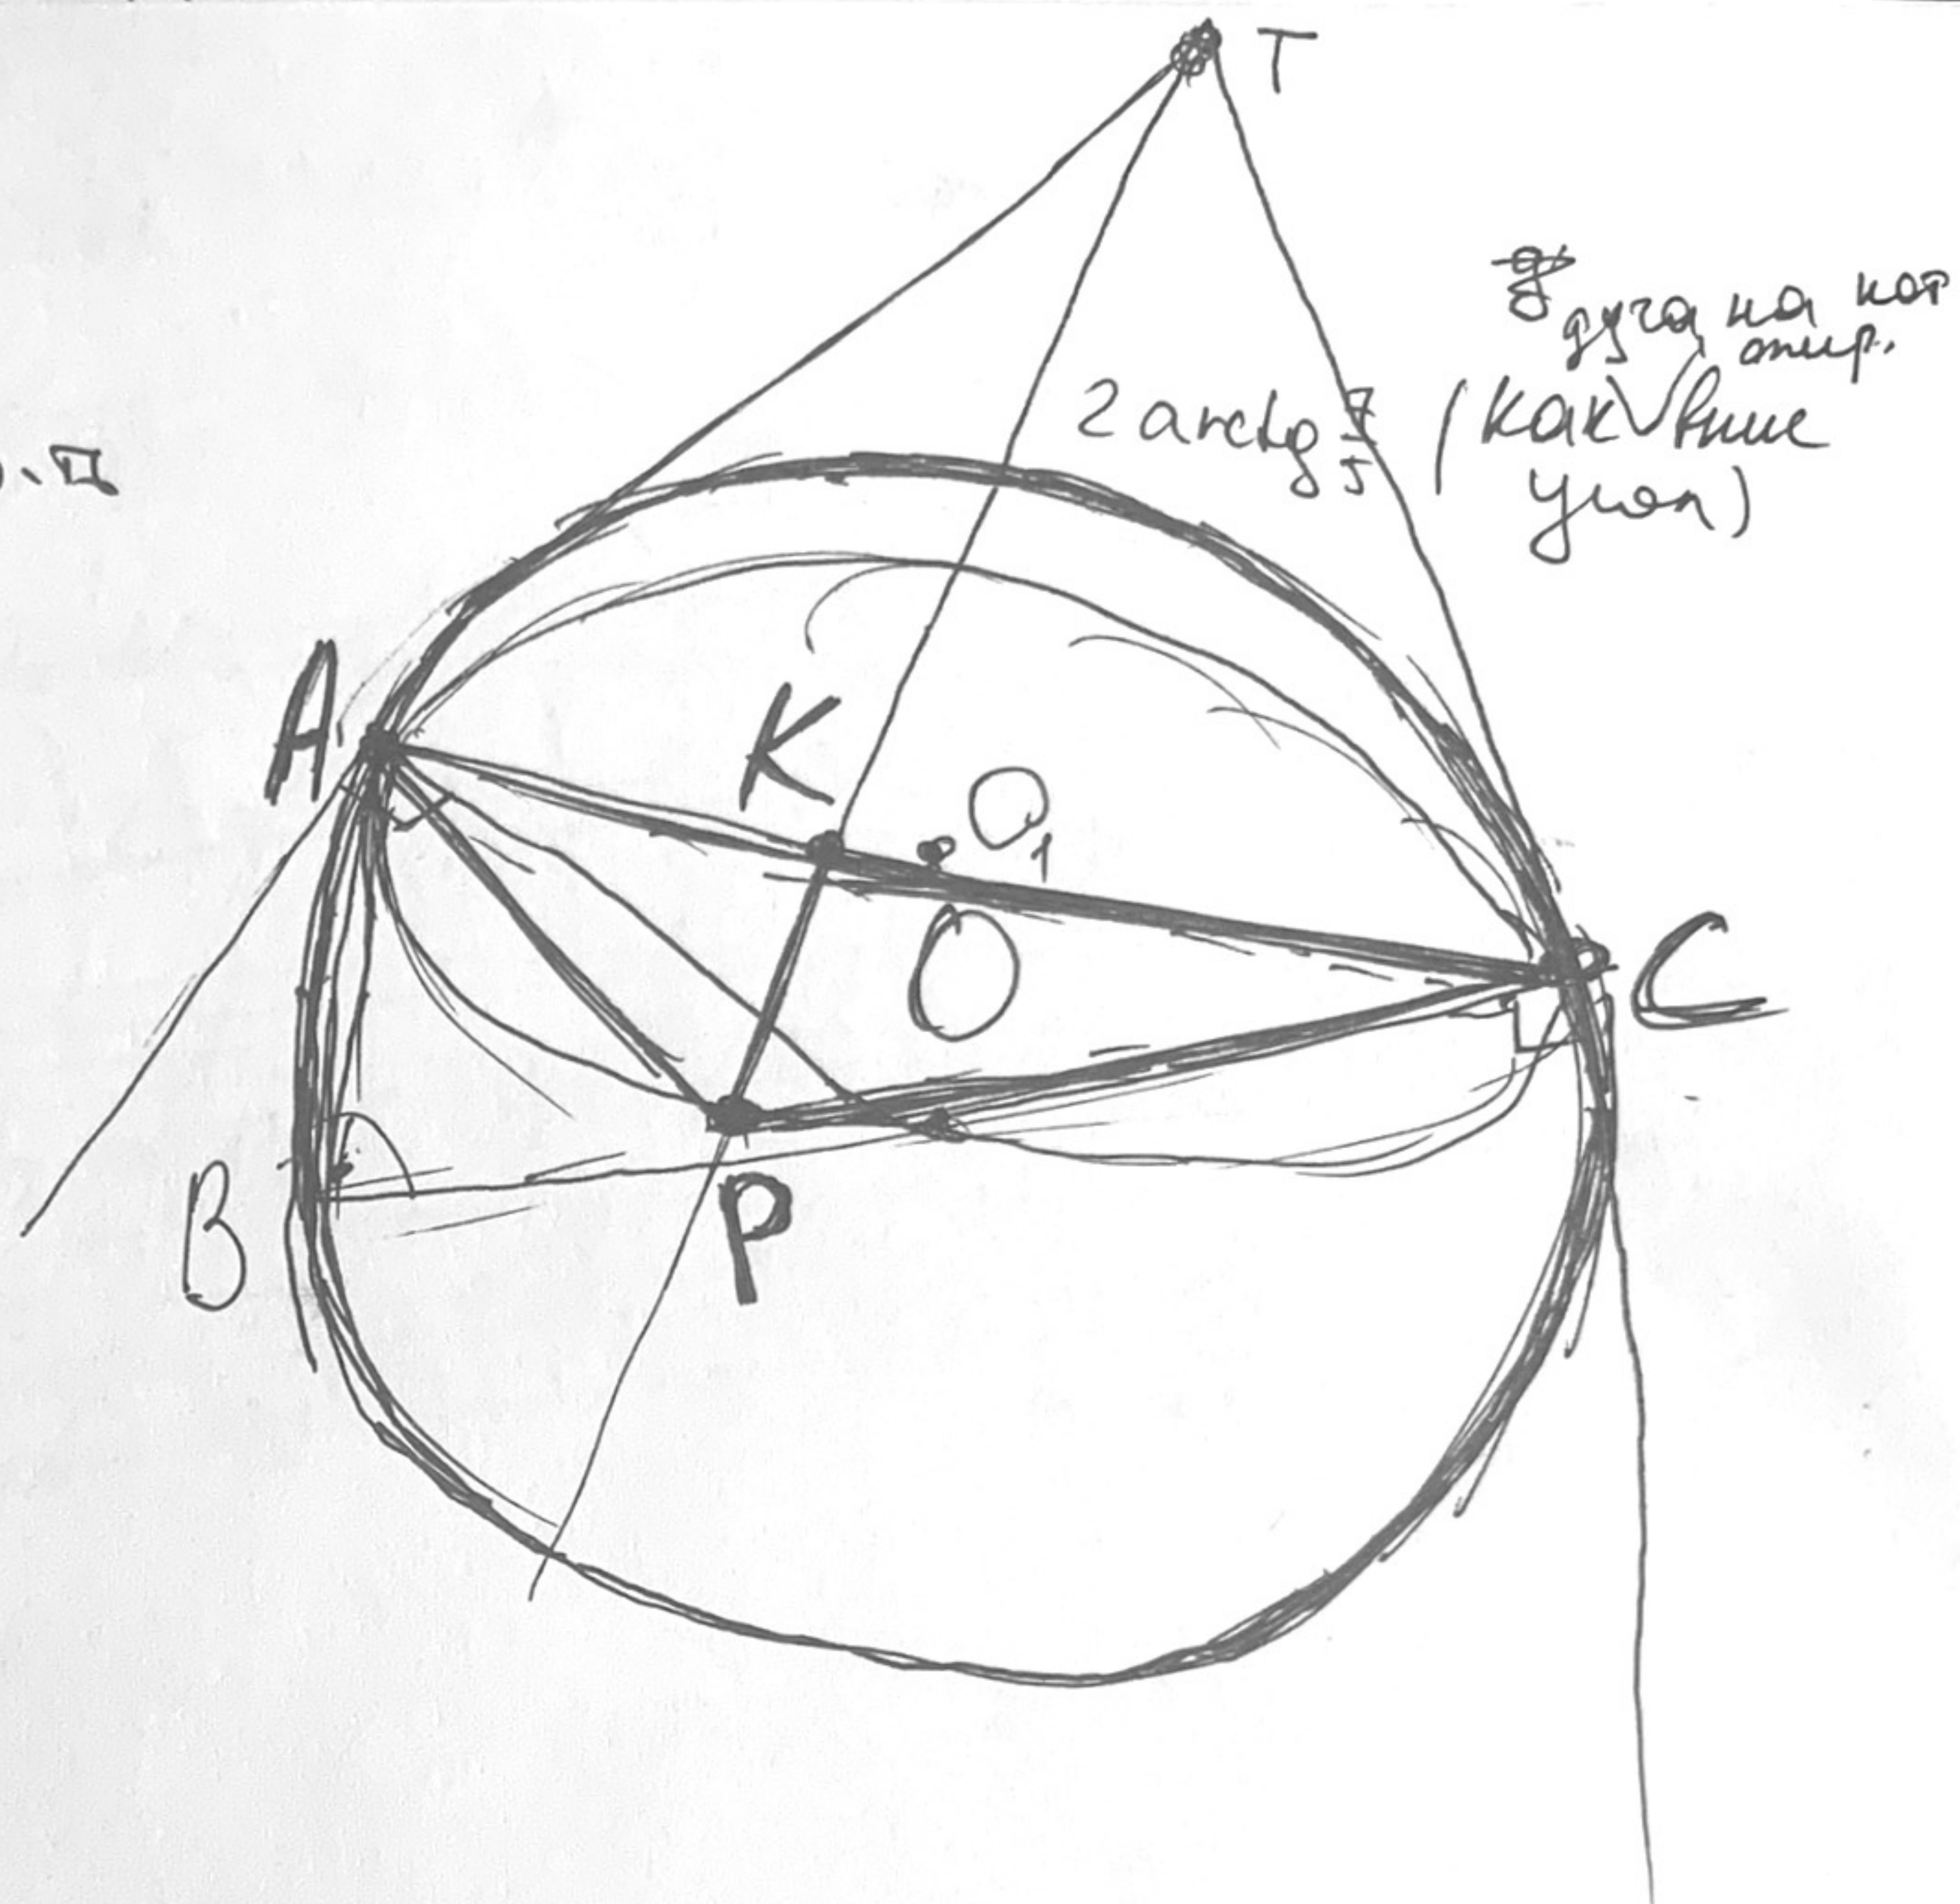 T
дуга на кот
опир.
2 arctg 7/5 (как впис
угол)
A
K
O₁
O
C
B
P